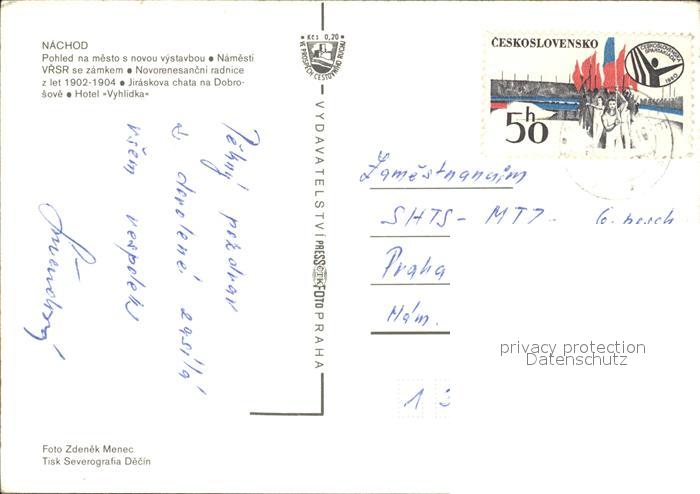 NÁCHOD
Pohled na město s novou výstavbou • Náměstí
VŘSR se zámkem • Novorenesanční radnice
z let 1902-1904 • Jiráskova chata na Dobro-
šově • Hotel »Vyhlídka«
Kčs 0,20
VE PROSPĚCH CESTOVNÍHO RUCHU
VYDAVATELSTVÍ PRESSFOTO PRAHA
ČTK
Pěkný pozdrav
z dovolené zasílá
všem vespolek
ČESKOSLOVENSKO
ČESKOSLOVENSKÁ SPARTAKIÁDA 1980
50h
Zaměstnancům
SHTS - MTZ - 6. posch.
Praha
Nám.
1 3
privacy protection
Datenschutz
Foto Zdeněk Menec
Tisk Severografia Děčín